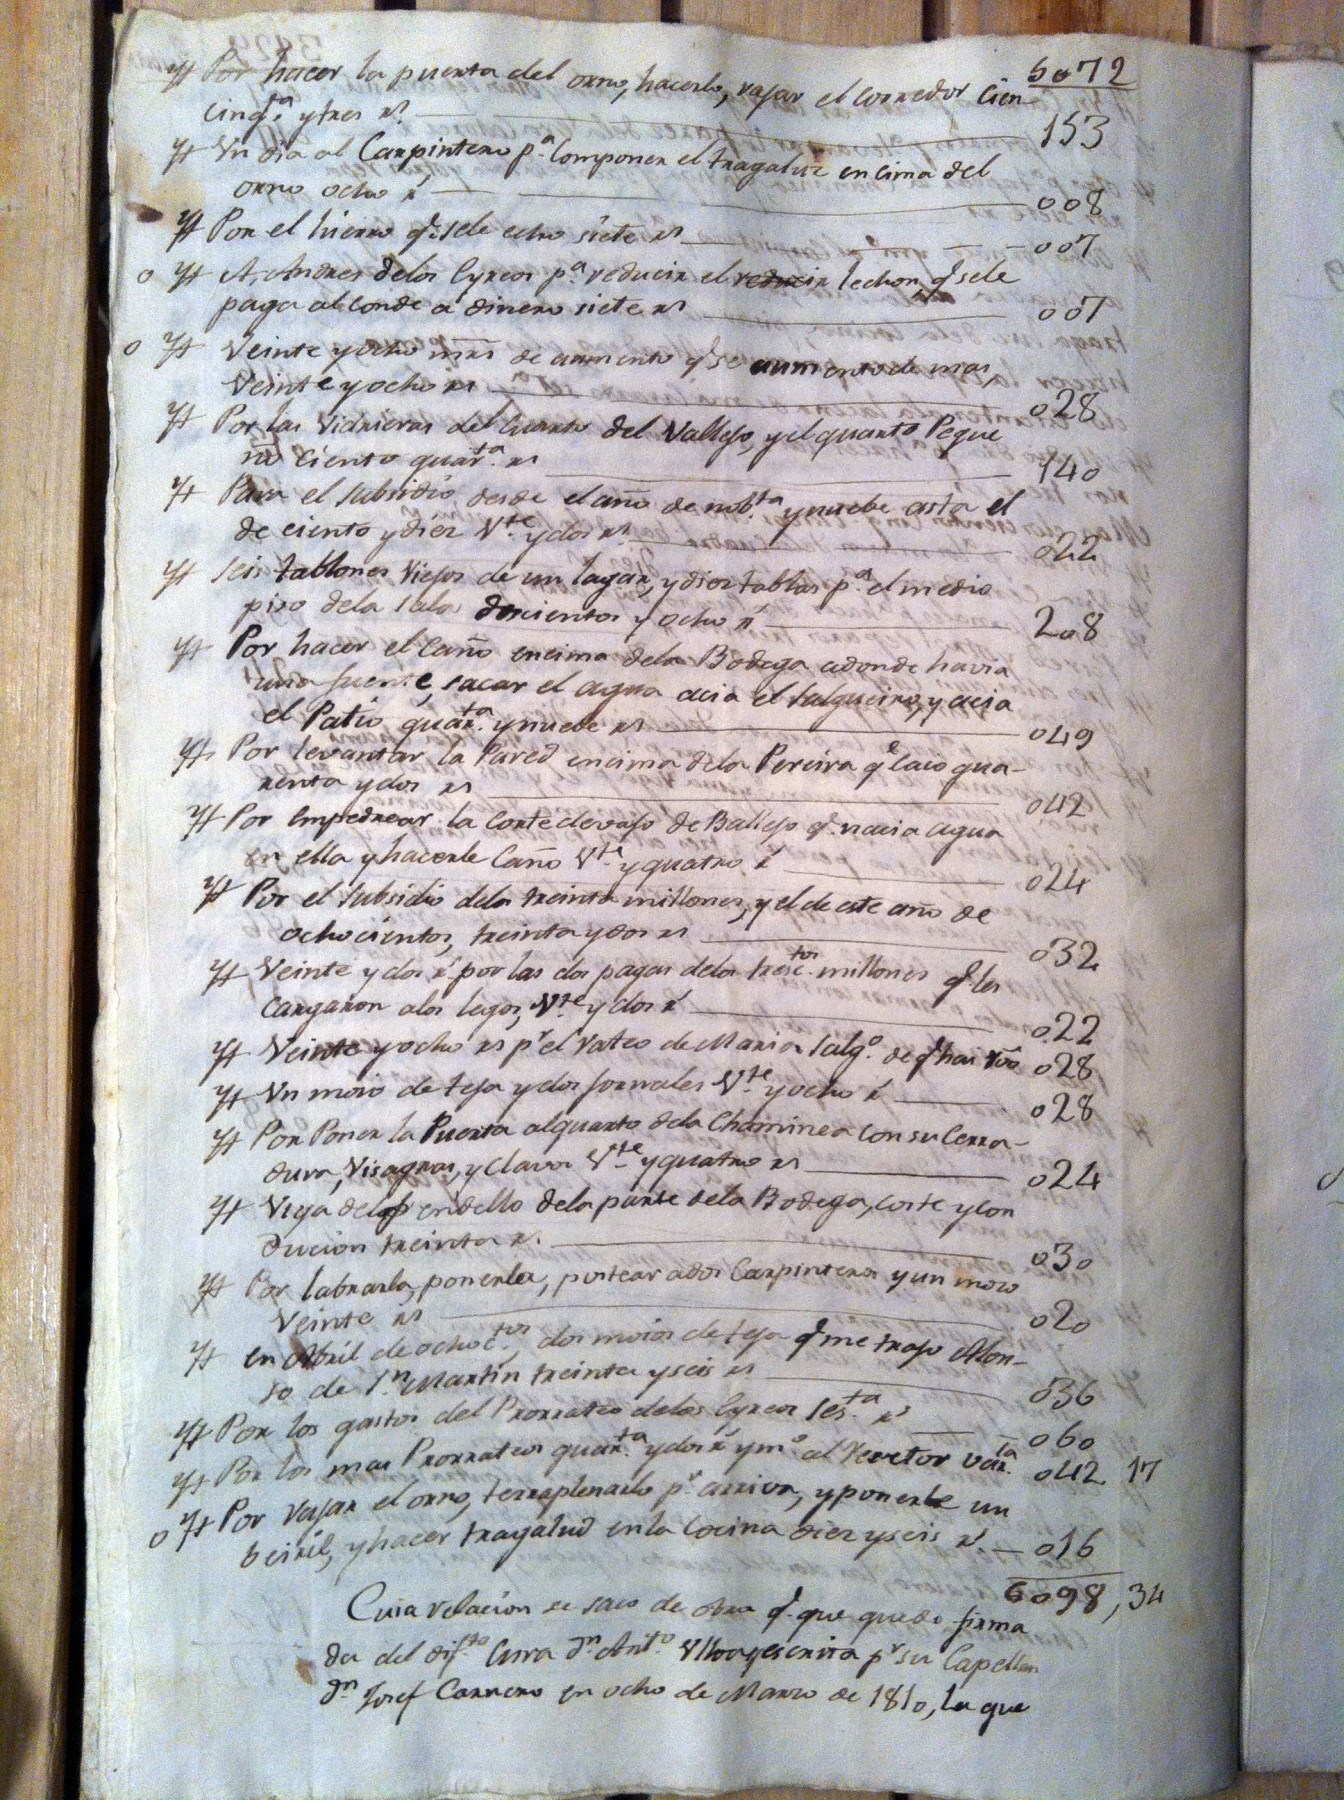 5072
Yt Por hacer la puerta del orno, hacerlo, rajar el corredor Cien
cinqta. ytres rs. 153
Yt Vn dia al Carpintero pa. Componer el tragaluz encima del
orno ocho rs 008
Yt Por el hierro q. sele echo siete rs 007
o Yt A Andres delos Eyreos pa. reducir el reducir lechon q sele
paga al Conde a dinero siete rs 007
o Yt Veinte yocho mrs de aumento q se aumento de mas,
Veinte yocho rs 028
Yt Por las Vidrieras del Cuarto del Vallejo, y el quarto Peque
ño Ciento quarta. rs 140
Yt Para el subsidio desde el año de nobta ynuebe asta el
de ciento ydiez Vte ydos rs. 022
Yt Seis tablones Viejos de un lagar, ydiez tablas pa. el medio
piso dela Sala doscientos y ocho rs 208
Yt Por hacer el Caño encima dela Bodega adonde havia
una fuente, sacar el agua acia el salgueiro, y acia
el Patio quarta. ynuebe rs 049
Yt Por levantar la Pared encima dela Pereira q Caio qua-
renta ydos rs 042
Yt Por Empedrear la Corte devajo de Ballejo q. nacia agua
en ella y hacerle Caño Vte yquatro rs 024
Yt Por el subsidio delos treinta millones, y el de este año de
ochocientos, treinta ydos rs 032
Yt Veinte ydos rs. por las dos pagas delos tresctos. millones q les
Cargaron alos legos, Vte ydos rs 022
Yt Veinte yocho rs pr el rateo de Maria Salgo. de q hai rvo 028
Yt Vn moio de teja ydos jornales Vte yocho rs 028
Yt Por Poner la Puerta alquarto dela Chaminea con su Cerra-
dura, Visagras, y Clavos Vte yquatro rs 024
Yt Viga del pendello dela parte dela Bodega, corte ycon
ducion treinta rs. 030
Yt Por labrarla, ponerla, postear ados Carpinteros y un mozo
Veinte rs 020
Yt en Abril de ochoctos., dos moios de teja q me trajo Alon-
so de Sn. Martin treinta yseis rs 036
Yt Por los gastos del Prorrateo delos Eyreos sesta rs 060
Yt Por los mas Prorrateos quarta. ydos rs ymo al Rector 042 17
o Yt Por vajar el orno, terraplenarlo pr arriva, y ponerle un
beiril, y hacer tragalud en la Cocina diez yseis rs. 016
6098,34
Cuia relacion se saco de otra q. que quedo firma
da del difto Cura Dn. Anto. Vlloa yescrita pr su Capellan
Dn Josef Carnero en ocho de Marzo de 1810, la que